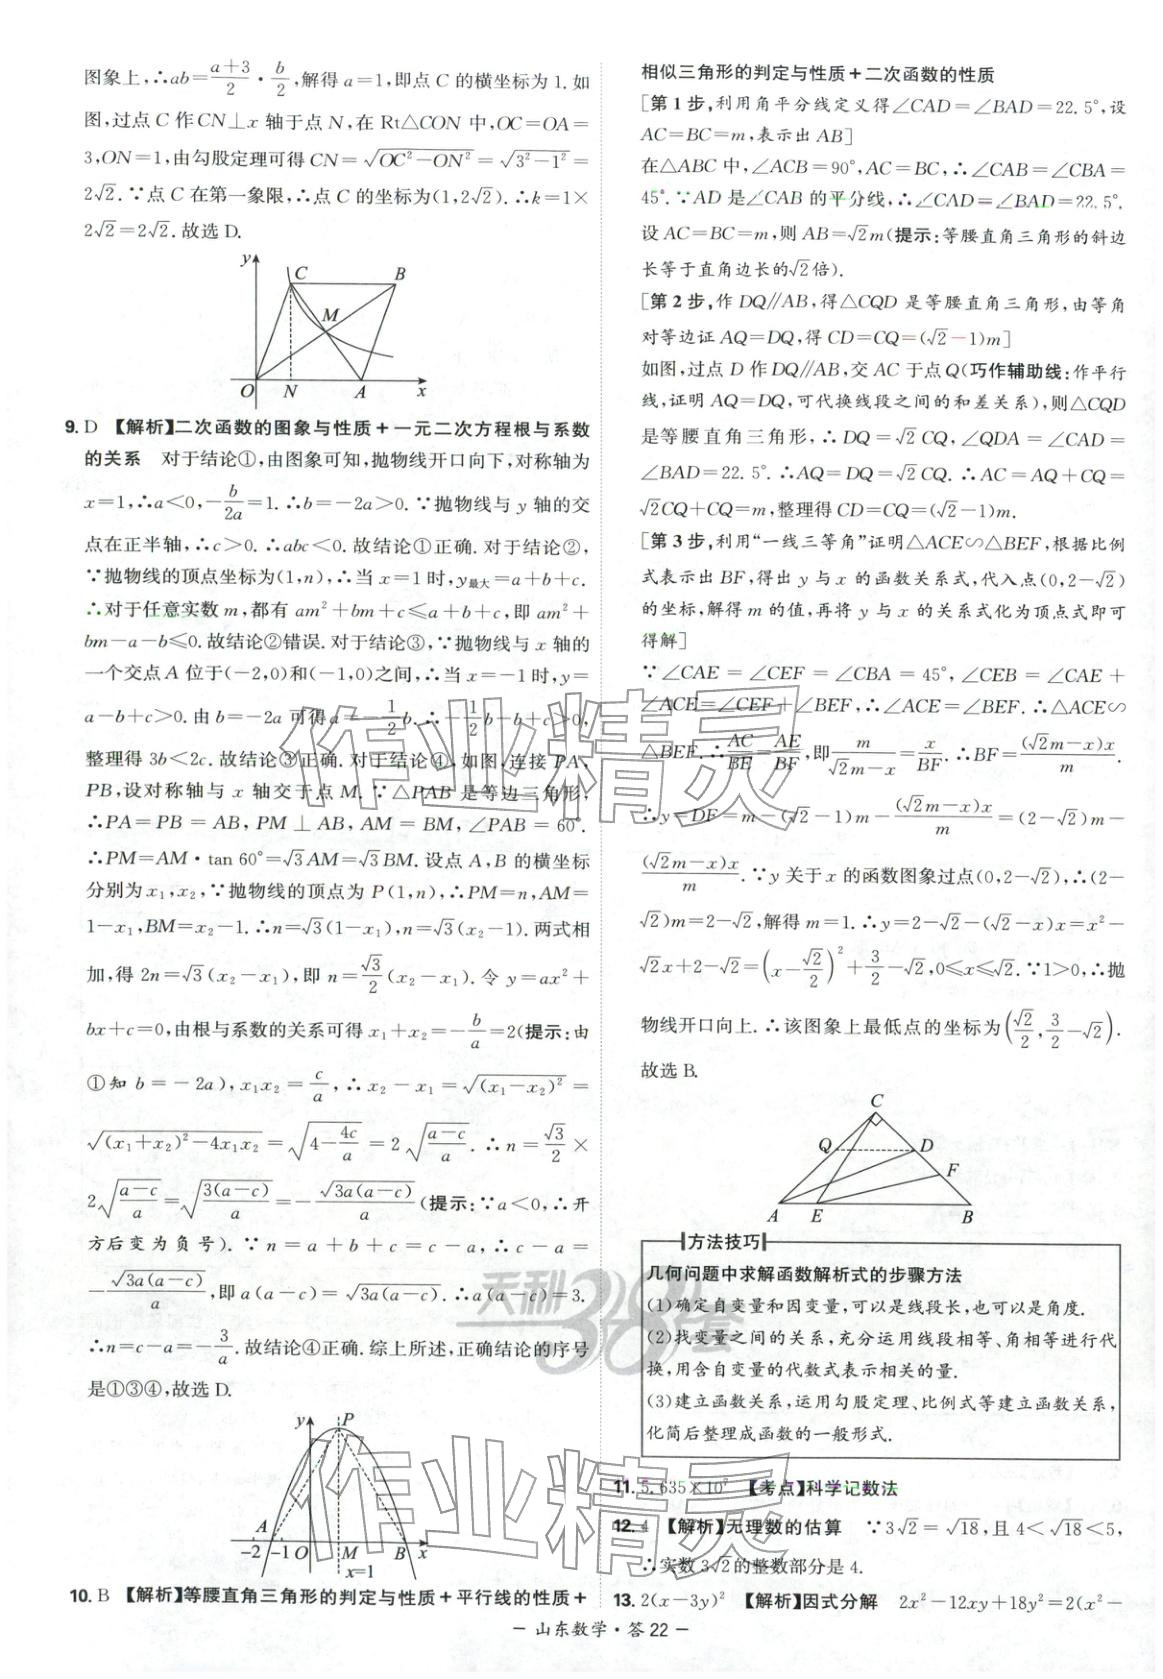 图象上,∴ab=(a+3)/2·b/2,解得a=1,即点C的横坐标为1.如
图,过点C作CN⊥x轴于点N,在Rt△CON中,OC=OA=
3,ON=1,由勾股定理可得CN=√(OC²-ON²)=√(3²-1²)=
2√2.∵点C在第一象限,∴点C的坐标为(1,2√2).∴k=1×
2√2=2√2.故选D.
y
C B
M
O N A x
9. D 【解析】二次函数的图象与性质+一元二次方程根与系数
的关系 对于结论①,由图象可知,抛物线开口向下,对称轴为
x=1,∴a<0,-b/2a=1.∴b=-2a>0.∵抛物线与y轴的交
点在正半轴,∴c>0.∴abc<0.故结论①正确.对于结论②,
∵抛物线的顶点坐标为(1,n),∴当x=1时,y最大=a+b+c.
∴对于任意实数m,都有am²+bm+c≤a+b+c,即am²+
bm-a-b≤0.故结论②错误.对于结论③,∵抛物线与x轴的
一个交点A位于(-2,0)和(-1,0)之间,∴当x=-1时,y=
a-b+c>0.由b=-2a可得a=-1/2b.∴-1/2b-b+c>0,
整理得3b<2c.故结论③正确.对于结论④,如图,连接PA,
PB,设对称轴与x轴交于点M.∵△PAB是等边三角形,
∴PA=PB=AB,PM⊥AB,AM=BM,∠PAB=60°.
∴PM=AM·tan 60°=√3AM=√3BM.设点A,B的横坐标
分别为x₁,x₂,∵抛物线的顶点为P(1,n),∴PM=n,AM=
1-x₁,BM=x₂-1.∴n=√3(1-x₁),n=√3(x₂-1).两式相
加,得2n=√3(x₂-x₁),即n=√3/2(x₂-x₁).令y=ax²+
bx+c=0,由根与系数的关系可得x₁+x₂=-b/a=2(提示:由
①知b=-2a),x₁x₂=c/a,∴x₂-x₁=√((x₁-x₂)²)=
√((x₁+x₂)²-4x₁x₂)=√(4-4c/a)=2√((a-c)/a).∴n=√3/2×
2√((a-c)/a)=√(3(a-c)/a)=-√(3a(a-c))/a(提示:∵a<0,∴开
方后变为负号).∵n=a+b+c=c-a,∴c-a=
-√(3a(a-c))/a,即a(a-c)=√(3a(a-c)).∴a(a-c)=3.
∴n=c-a=-3/a.故结论④正确.综上所述,正确结论的序号
是①③④,故选D.
y P
A
-2 -1 O M B x
x=1
10. B 【解析】等腰直角三角形的判定与性质+平行线的性质+
相似三角形的判定与性质+二次函数的性质
[第1步,利用角平分线定义得∠CAD=∠BAD=22.5°,设
AC=BC=m,表示出AB]
在△ABC中,∠ACB=90°,AC=BC,∴∠CAB=∠CBA=
45°.∵AD是∠CAB的平分线,∴∠CAD=∠BAD=22.5°.
设AC=BC=m,则AB=√2m(提示:等腰直角三角形的斜边
长等于直角边长的√2倍).
[第2步,作DQ∥AB,得△CQD是等腰直角三角形,由等角
对等边证AQ=DQ,得CD=CQ=(√2-1)m]
如图,过点D作DQ∥AB,交AC于点Q(巧作辅助线:作平行
线,证明AQ=DQ,可代换线段之间的和差关系),则△CQD
是等腰直角三角形,∴DQ=√2CQ,∠QDA=∠CAD=
∠BAD=22.5°.∴AQ=DQ=√2CQ.∴AC=AQ+CQ=
√2CQ+CQ=m,整理得CD=CQ=(√2-1)m.
[第3步,利用“一线三等角”证明△ACE∽△BEF,根据比例
式表示出BF,得出y与x的函数关系式,代入点(0,2-√2)
的坐标,解得m的值,再将y与x的关系式化为顶点式即可
得解]
∵∠CAE=∠CEF=∠CBA=45°,∠CEB=∠CAE+
∠ACE=∠CEF+∠BEF,∴∠ACE=∠BEF.∴△ACE∽
△BEF.∴AC/BE=AE/BF,即m/(√2m-x)=x/BF.∴BF=(√2m-x)x/m.
∴y=DF=m-(√2-1)m-(√2m-x)x/m=(2-√2)m-
(√2m-x)x/m.∵y关于x的函数图象过点(0,2-√2),∴(2-
√2)m=2-√2,解得m=1.∴y=2-√2-(√2-x)x=x²-
√2x+2-√2=(x-√2/2)²+3/2-√2,0≤x≤√2.∵1>0,∴抛
物线开口向上.∴该图象上最低点的坐标为(√2/2,3/2-√2).
故选B.
C
Q D
F
A E B
方法技巧
几何问题中求解函数解析式的步骤方法
(1)确定自变量和因变量,可以是线段长,也可以是角度.
(2)找变量之间的关系,充分运用线段相等、角相等进行代
换,用含自变量的代数式表示相关的量.
(3)建立函数关系,运用勾股定理、比例式等建立函数关系,
化简后整理成函数的一般形式.
11. 5.635×10⁷ 【考点】科学记数法
12. 4 【解析】无理数的估算 ∵3√2=√18,且4<√18<5,
∴实数3√2的整数部分是4.
13. 2(x-3y)² 【解析】因式分解 2x²-12xy+18y²=2(x²-
- 山东数学·答22 -
作业精灵
天利38套
作业精灵